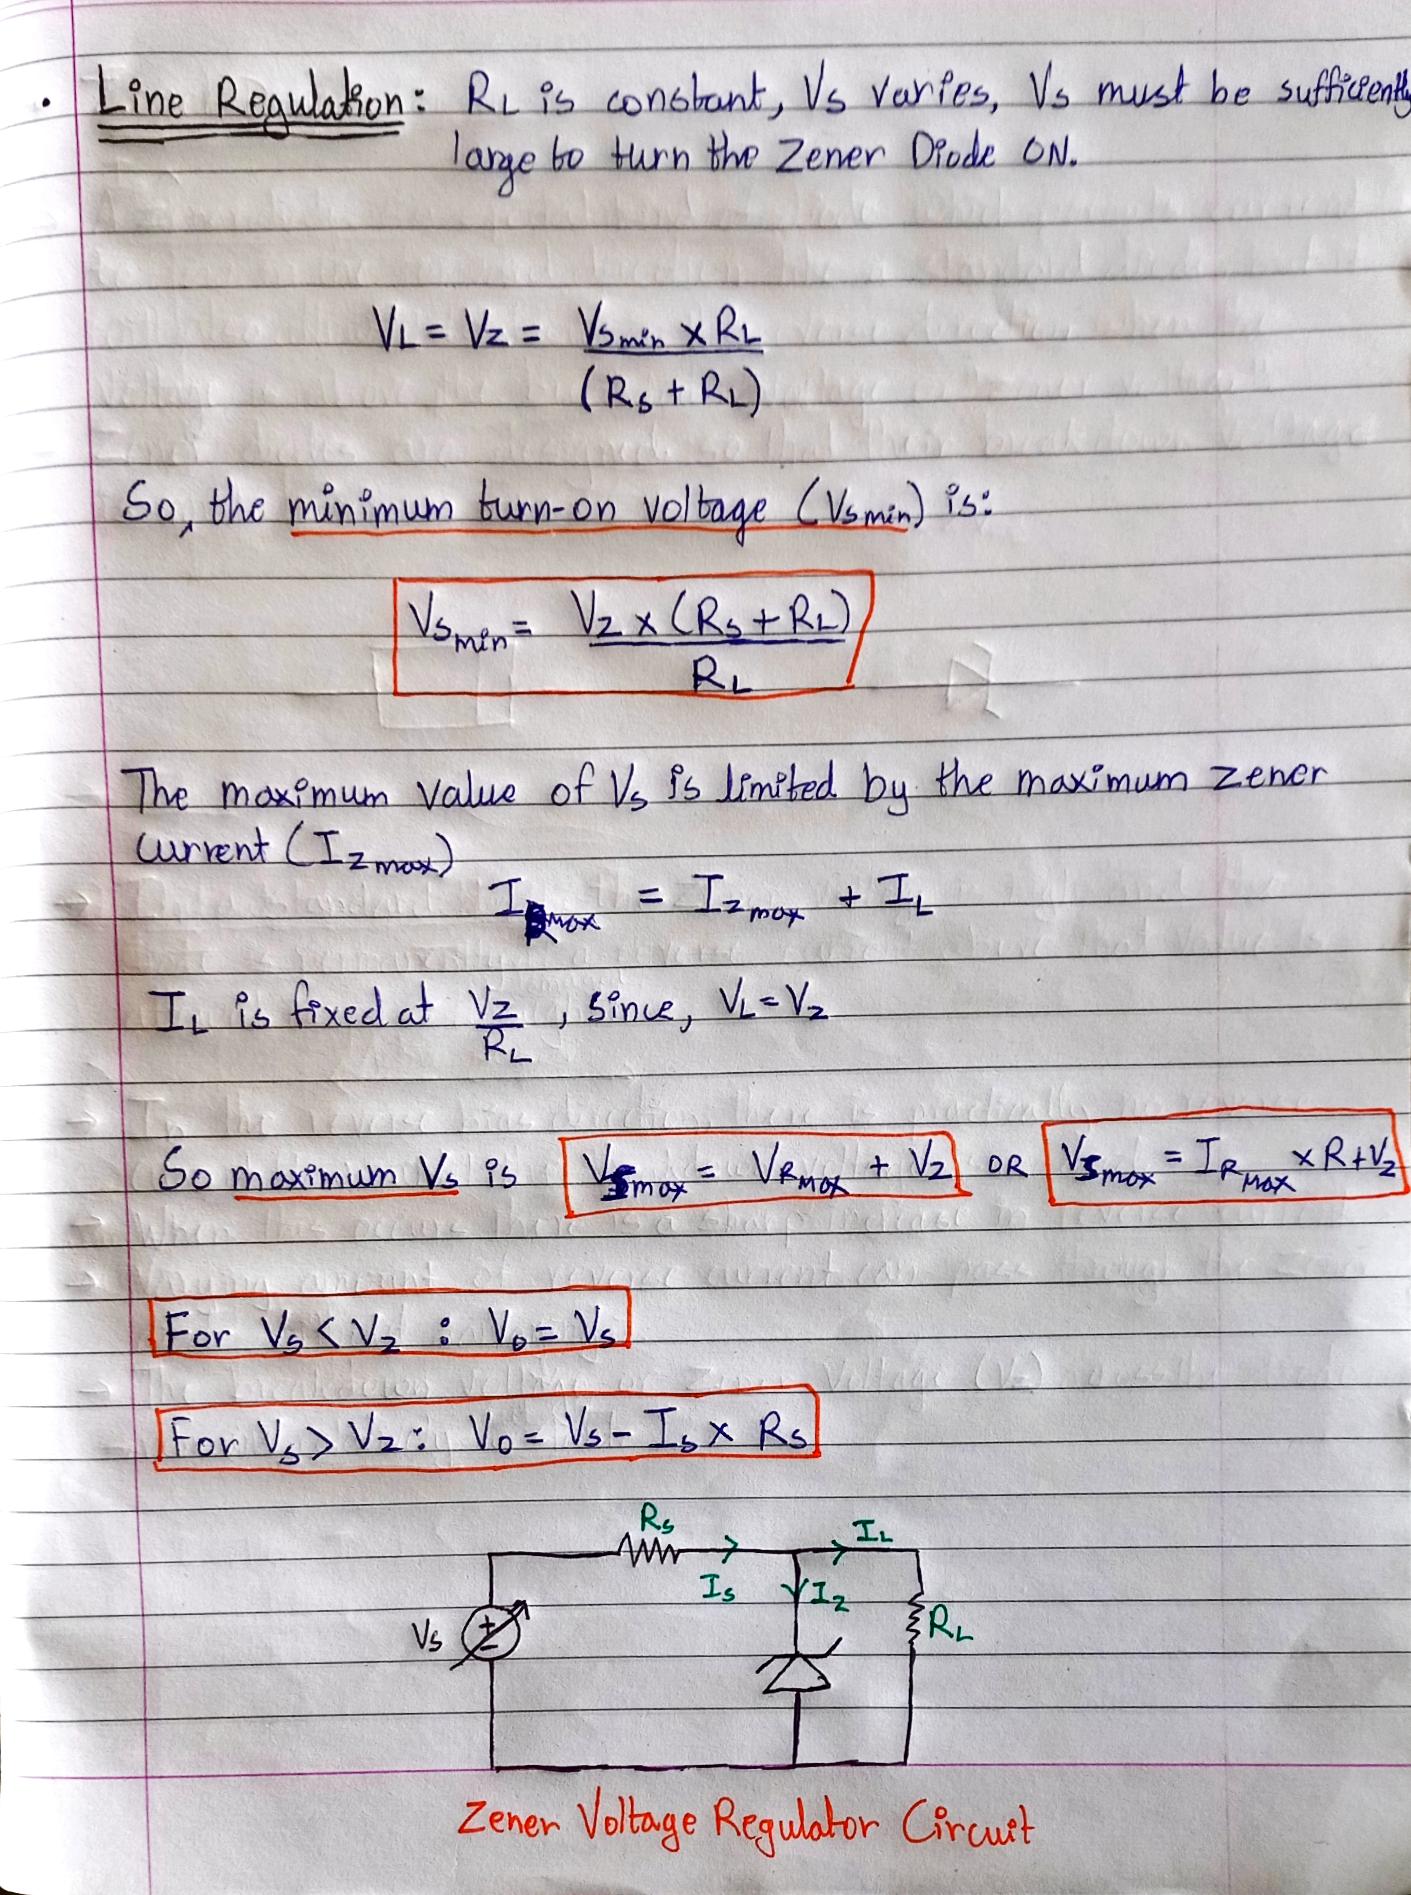 • Line Regulation: RL is constant, Vs varies, Vs must be sufficiently
large to turn the Zener Diode ON.
VL = Vz = Vsmin x RL
(Rs + RL)
So, the minimum turn-on voltage (Vsmin) is:
Vsmin = Vz x (Rs + RL)
RL
The maximum value of Vs is limited by the maximum zener
current (Izmax)
IRmax = Izmax + IL
IL is fixed at Vz , since, VL = Vz
RL
So maximum Vs is Vsmax = VRmax + Vz OR Vsmax = IRmax x R + Vz
For Vs < Vz : Vo = Vs
For Vs > Vz : Vo = Vs - Is x Rs
Rs
IL
Is
Iz
Vs
RL
Zener Voltage Regulator Circuit